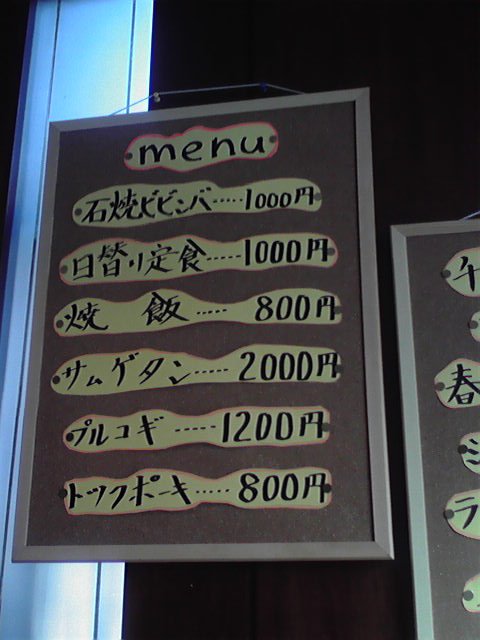 menu
石焼ビビンバ‥‥1000円
日替り定食‥‥1000円
焼 飯‥‥800円
サムゲタン‥‥2000円
プルコギ‥‥1200円
トックポーキ‥‥800円
春
ラ